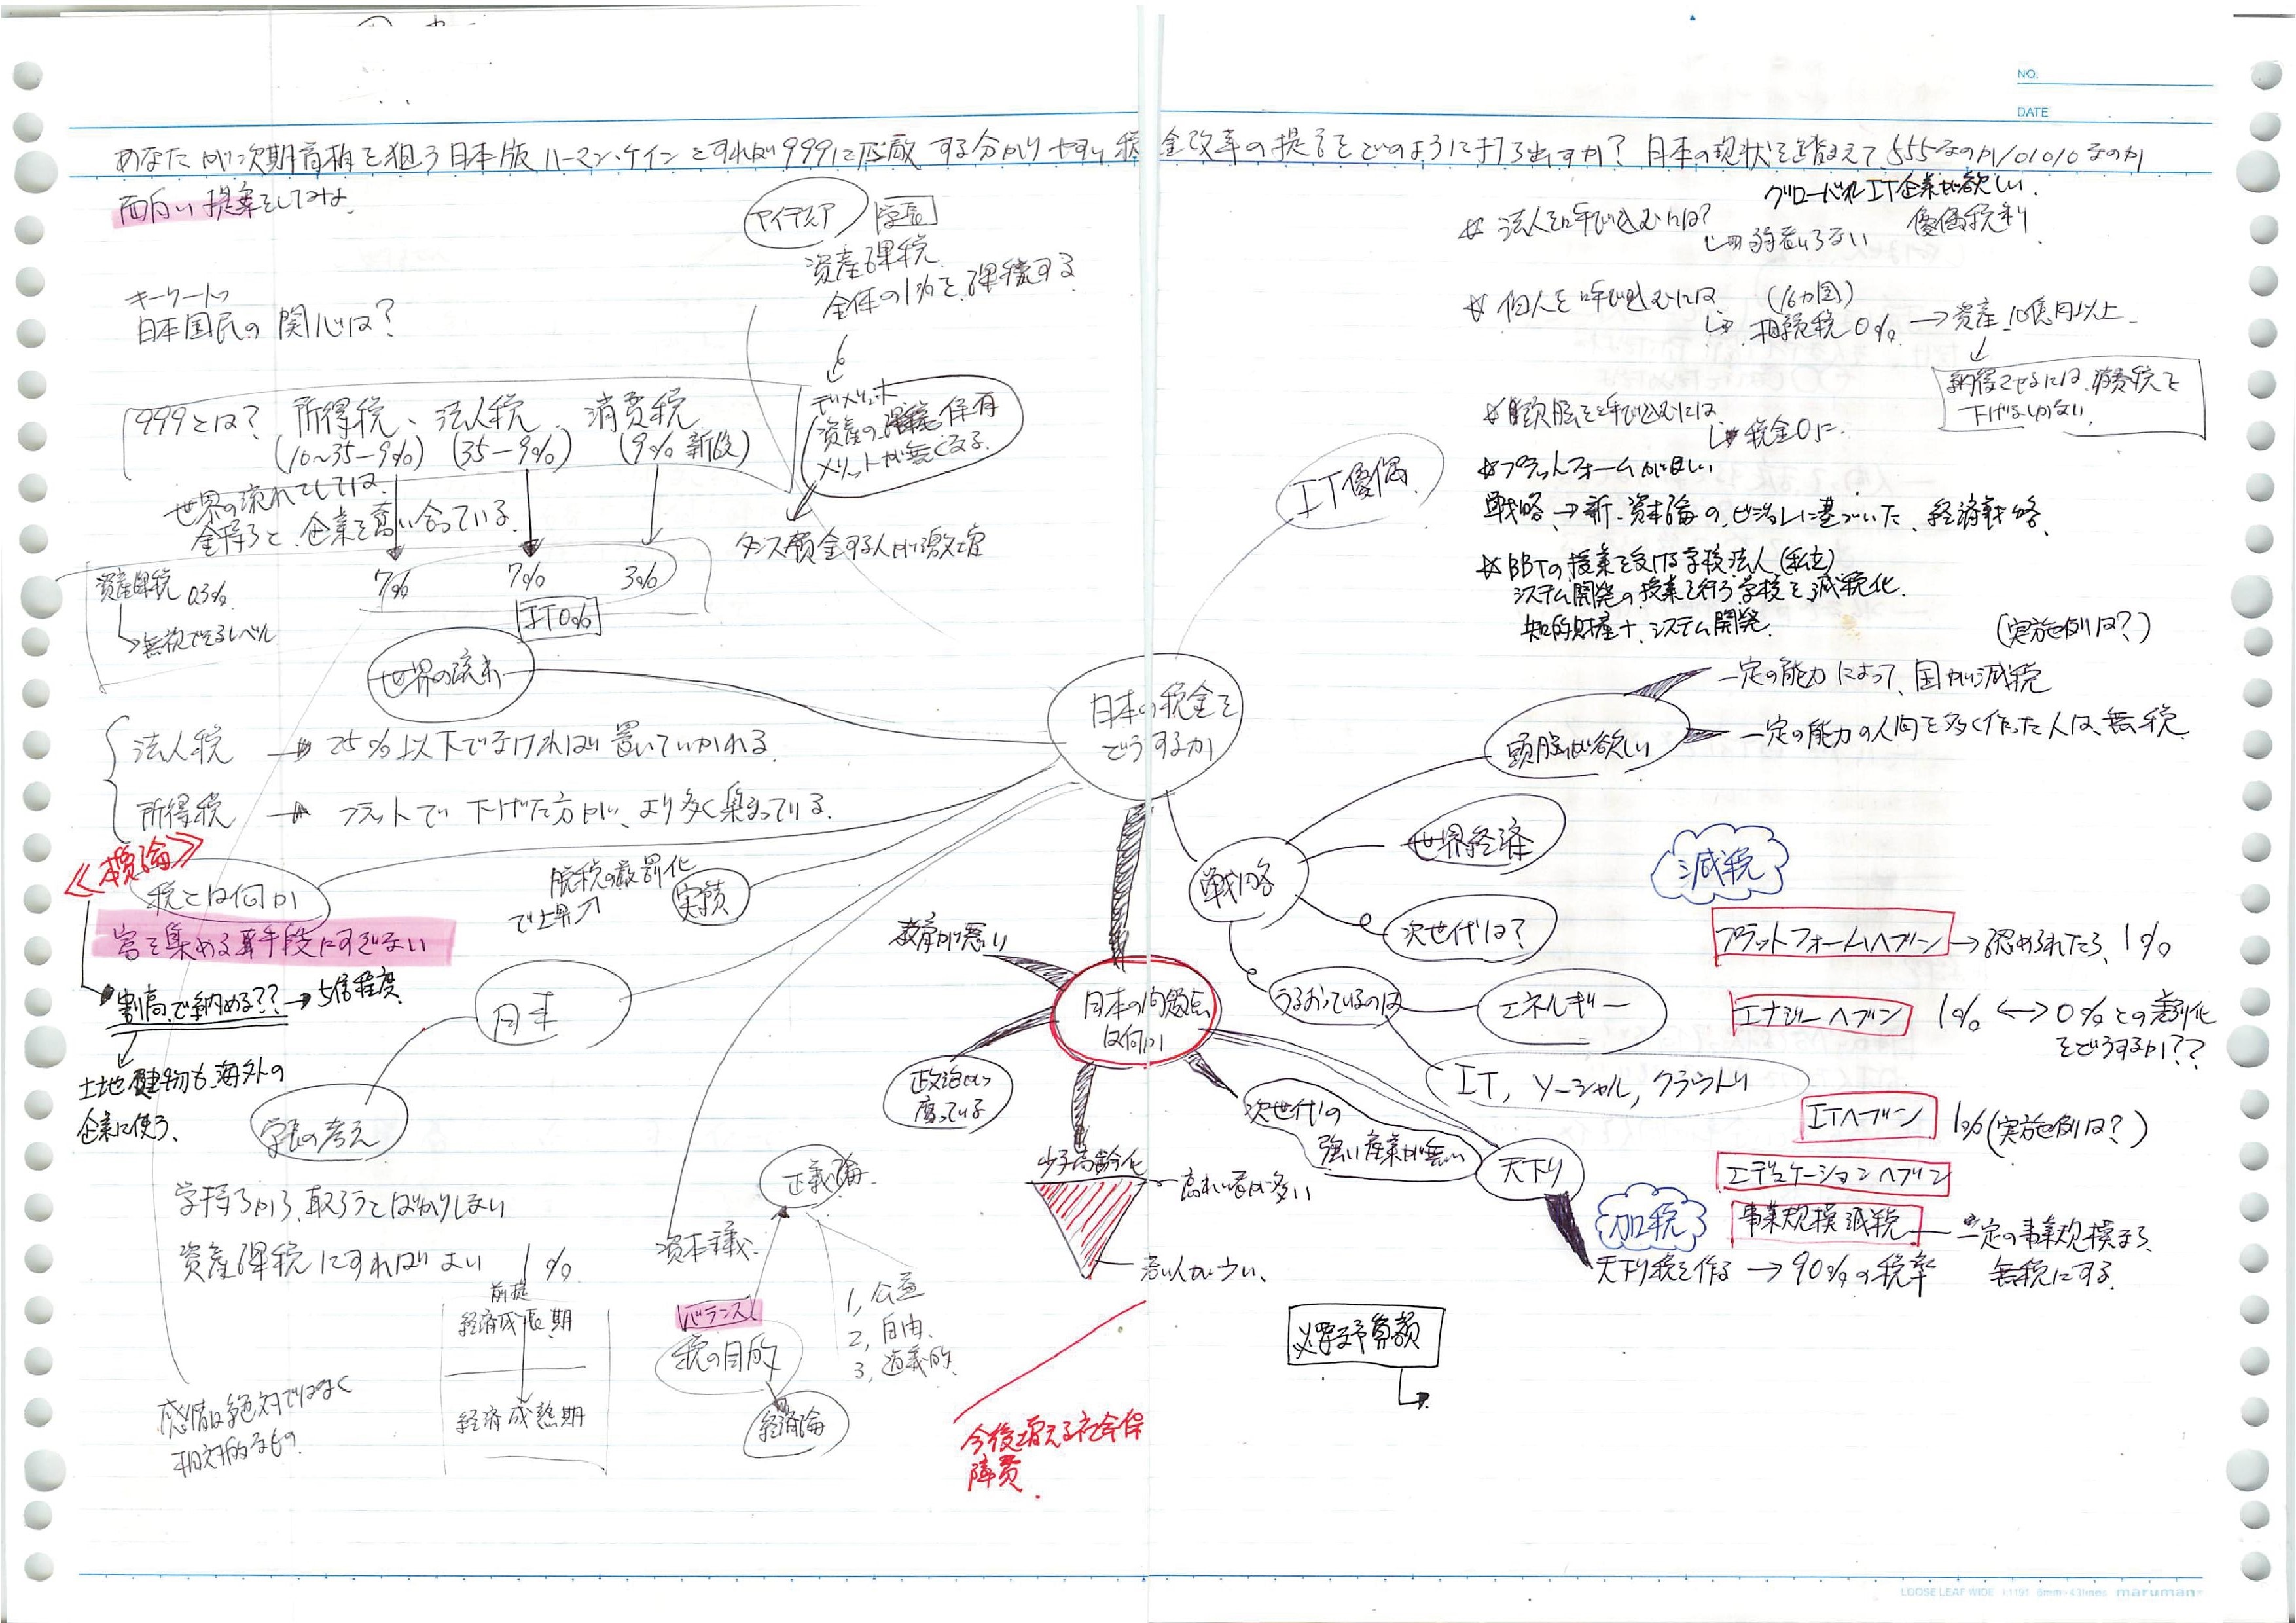 NO.
DATE
あなたが次期首相を狙う日本版ハーマン・ケインとすれば999に匹敵する分かりやすい税金改革の提言をどのように打ち出すか？日本の現状を踏まえて555なのか101010なのか
面白い提案をしてみよ。
アイデア 学長
資産課税
全体の1%を課税する
デメリット
資産の保有
メリットが無くなる。
タンス預金する人が激増
キーワード
日本国民の関心は？
999とは？ 所得税、法人税 消費税
(10〜35→9%) (35→9%) (9% 新設)
世界の流れとしては、
金持ちと、企業を奪い合っている。
7% 7% 3%
IT0%
資産課税 0.3%
無視できるレベル
世界の流れ
法人税 → 25%以下でなければ置いていかれる。
所得税 → フラットで下げた方が、より多く集まっている。
≪概論≫
税とは何か
富を集める手段にすぎない
割高で納める？？→5倍程度
土地建物も海外の
企業に使う、
脱税の厳罰化
で上昇↗
実績
日本
学長の考え
金持ちから、取ろうとばかりしない
資産課税にすればよい 1%
前提
経済成長期
経済成熟期
感情は絶対ではなく
相対的なもの
資本主義
正義論
1, 公益
2, 自由、
3, 道義的
バランス
税の目的
経済論
日本の税金を
どうするか
日本の問題点
は何か
教育が悪い
政治が
腐っている
少子高齢化
高れい者が多い
若い人が少ない、
今後増える社会保
障費.
次世代の
強い産業が無い
天下り
加税
天下り税を作る → 90%の税率
必要予算額
IT優遇
グローバルIT企業が欲しい.
☆ 法人を呼び込むには？
優偶税制
☆ 個人を呼び込むには (16カ国)
相続税0% → 資産10億円以上
納得させるには、消費税を
下げるしかない
☆ 頭脳を呼び込むには
税金0に
☆プラットフォームがほしい
戦略 → 新・資本論のビジョンに基づいた、経済戦略
☆BBTの授業を受ける学校法人（私立）
システム開発の授業を行う学校を減税化.
知的財産＋システム開発.
(実施例は？)
頭脳が欲しい
一定の能力によって、国が減税
一定の能力の人間を多く作った人は、無税
戦略
世界経済
次世代は？
うるおっているのは
エネルギー
IT, ソーシャル, クラウド
減税
プラットフォームヘブン → 認められたら、1%
エナジーヘブン 1% ↔ 0%との差別化
をどうするか？？
ITヘブン 1% (実施例は？)
エデュケーションヘブン
事業規模減税 一定の事業規模まで、
無税にする.
LOOSE LEAF WIDE 6mm×43lines maruman